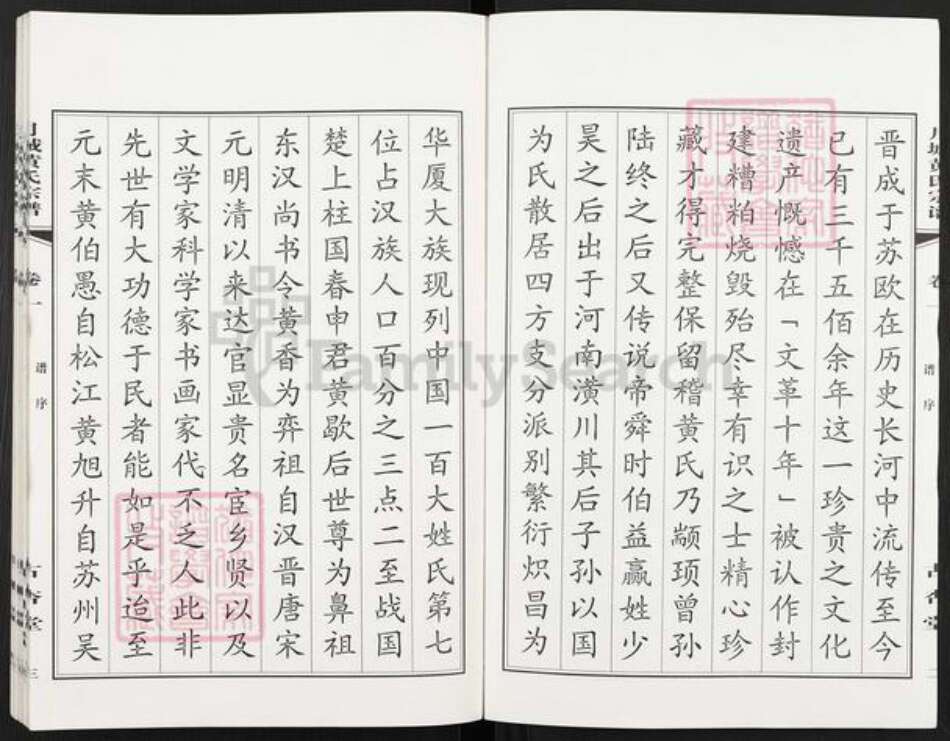 晋成于苏欧在历史长河中流传至今
已有三千五佰余年这一珍贵之文化
遗产慨憾在「文革十年」被认作封
建糟粕烧毁殆尽幸有识之士精心珍
藏才得完整保留稽黄氏乃颛顼曾孙
陆终之后又传说帝舜时伯益赢姓少
昊之后出于河南潢川其后子孙以国
为氏散居四方支分派别繁衍炽昌为
华厦大族现列中国一百大姓氏第七
位占汉族人口百分之三点二至战国
楚上柱国春申君黄歇后世尊为鼻祖
东汉尚书令黄香为弈祖自汉晋唐宋
元明清以来达官显贵名宦乡贤以及
文学家科学家书画家代不乏人此非
先世有大功德于民者能如是乎迨至
元末黄伯愚自松江黄旭升自苏州吴
城黄氏宗谱
卷一
谱序
三
谱序
FamilySearch